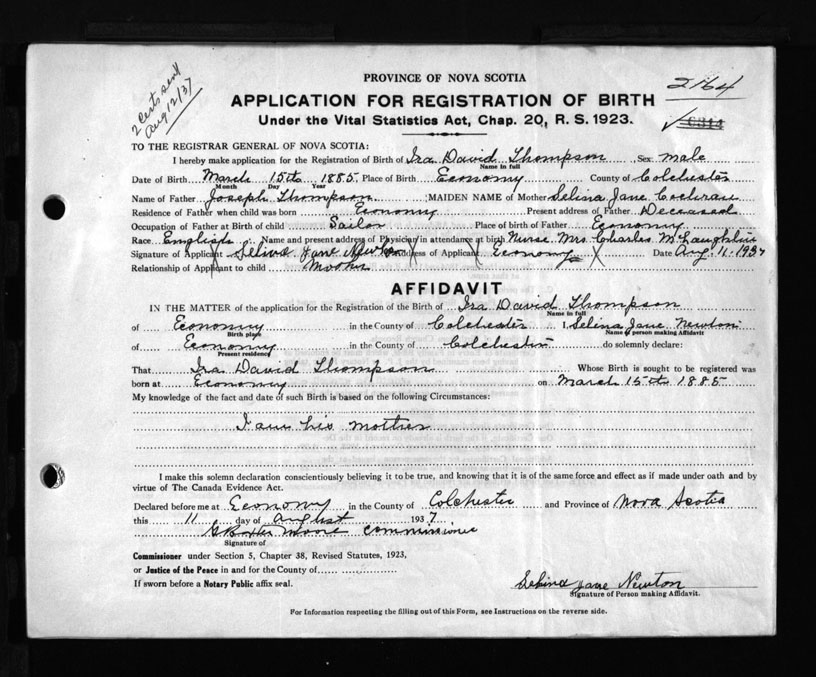 PROVINCE OF NOVA SCOTIA
2164
2 Certs sent
Aug 12/37
APPLICATION FOR REGISTRATION OF BIRTH
Under the Vital Statistics Act, Chap. 20, R. S. 1923.
TO THE REGISTRAR GENERAL OF NOVA SCOTIA:
I hereby make application for the Registration of Birth of Ira David Thompson Sex male
Name in full
Date of Birth March 15th 1885 Place of Birth Economy County of Colchester
Month Day Year
Name of Father Joseph Thompson MAIDEN NAME of Mother Selina Jane Cochran
Residence of Father when child was born Economy Present address of Father Deceased
Occupation of Father at Birth of child Sailor Place of birth of Father Economy
Race English Name and present address of Physician in attendance at birth Nurse Mrs. Charles McLaughlin
Signature of Applicant Selina Jane Newton Address of Applicant Economy Date Aug. 11-1937
Relationship of Applicant to child Mother
AFFIDAVIT
IN THE MATTER of the application for the Registration of the Birth of Ira David Thompson
Name in full
of Economy in the County of Colchester I, Selina Jane Newton
Birth place Name of person making Affidavit
of Economy in the County of Colchester do solemnly declare:
Present residence
That Ira David Thompson Whose Birth is sought to be registered was
born at Economy on March 15th 1885
My knowledge of the fact and date of such Birth is based on the following Circumstances:
I am his mother
I make this solemn declaration conscientiously believing it to be true, and knowing that it is of the same force and effect as if made under oath and by
virtue of The Canada Evidence Act.
Declared before me at Economy in the County of Colchester and Province of Nova Scotia
this 11 day of August 1937
Moore Commissioner
Signature of
Commissioner under Section 5, Chapter 38, Revised Statutes, 1923,
or Justice of the Peace in and for the County of
If sworn before a Notary Public affix seal.
Selina Jane Newton
Signature of Person making Affidavit.
For Information respecting the filling out of this Form, see Instructions on the reverse side.